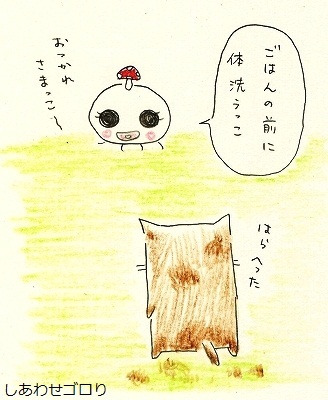 ごはんの前に
体洗うっこ
おつかれ
さまっこ〜
はらへった
しあわせゴロリ